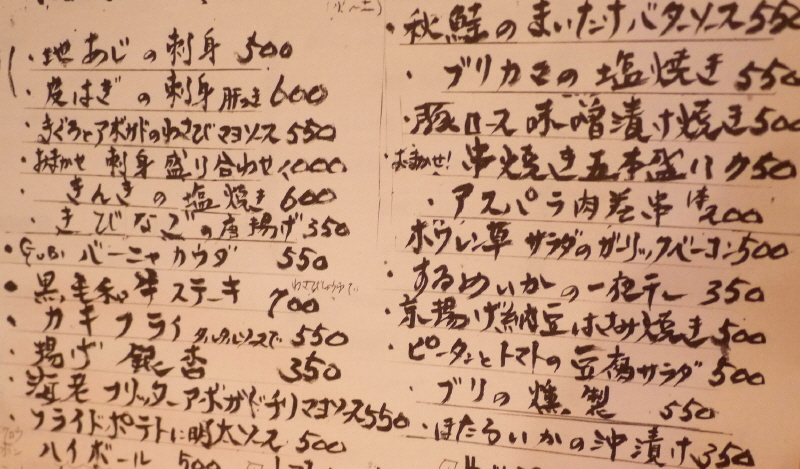 (火〜土)
・地あじの刺身 500
・皮はぎの刺身 肝つき 600
・まぐろとアボガドのわさびマヨソース 550
・おまかせ 刺身盛り合わせ 1000
・きんきの塩焼き 600
・きびなごの唐揚げ 350
・バーニャカウダ 550
・黒毛和牛ステーキ わさびじょうゆで 700
・カキフライ タルタルソースで 550
・揚げ銀杏 350
・海老フリッターアボガドチリマヨソース 550
・フライドポテト明太ソース 500
ハイボール 500
・秋鮭のまいたけバターソース 550
・ブリカマの塩焼き 550
・豚ロース味噌漬け焼き 500
・おまかせ! 串焼き五本盛り 750
・アスパラ肉巻串 200
ホウレン草サラダのガーリックベーコン 500
・するめいかの一夜干し 350
・京揚げ納豆はさみ焼き 500
・ピータンとトマトの豆腐サラダ 500
・ブリの燻製 550
・ほたるいかの沖漬け 350